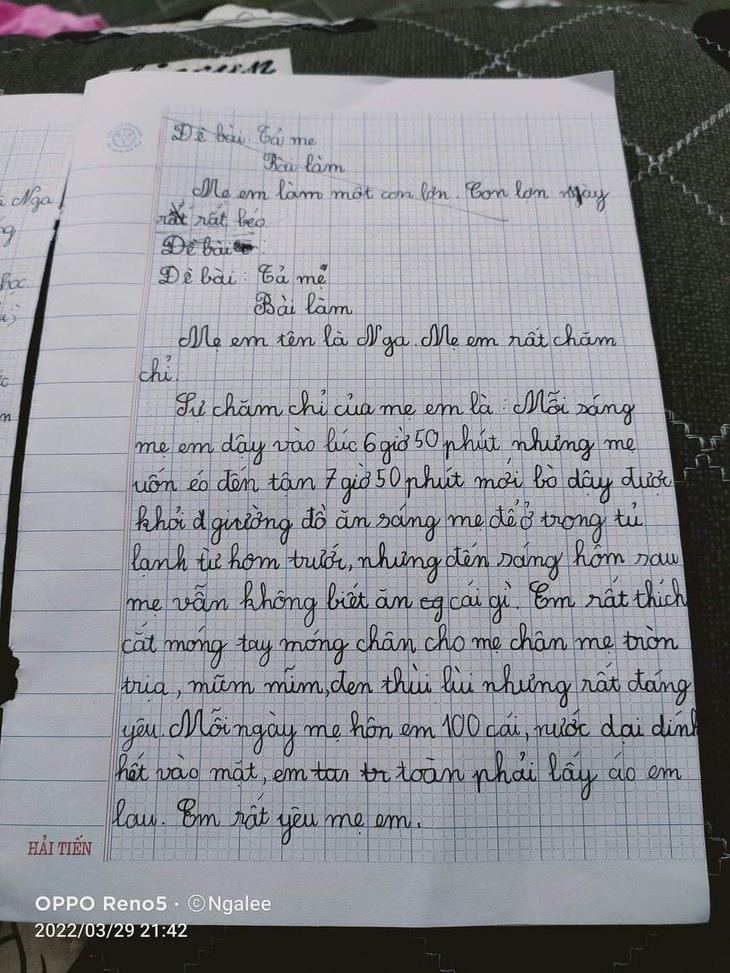 Đề bài: Tả mẹ
Bài làm
Mẹ em làm một con lợn. Con lợn này
rất rất béo
Đề bài:
Đề bài: Tả mẹ
Bài làm
Mẹ em tên là Nga. Mẹ em rất chăm
chỉ.
Sự chăm chỉ của mẹ em là: Mỗi sáng
mẹ em dậy vào lúc 6 giờ 50 phút nhưng mẹ
uốn éo đến tận 7 giờ 50 phút mới bò dậy được
khỏi d giường đồ ăn sáng mẹ để ở trong tủ
lạnh từ hôm trước, nhưng đến sáng hôm sau
mẹ vẫn không biết ăn cg cái gì. Em rất thích
cắt móng tay móng chân cho mẹ chân mẹ tròn
trịa, mũm mĩm, đen thùi lùi nhưng rất đáng
yêu. Mỗi ngày mẹ hôn em 100 cái, nước dại dính
hết vào mặt, em tan tr toàn phải lấy áo em
lau. Em rất yêu mẹ em.
HẢI TIẾN
Nga
OPPO Reno5 · ©Ngalee
2022/03/29 21:42